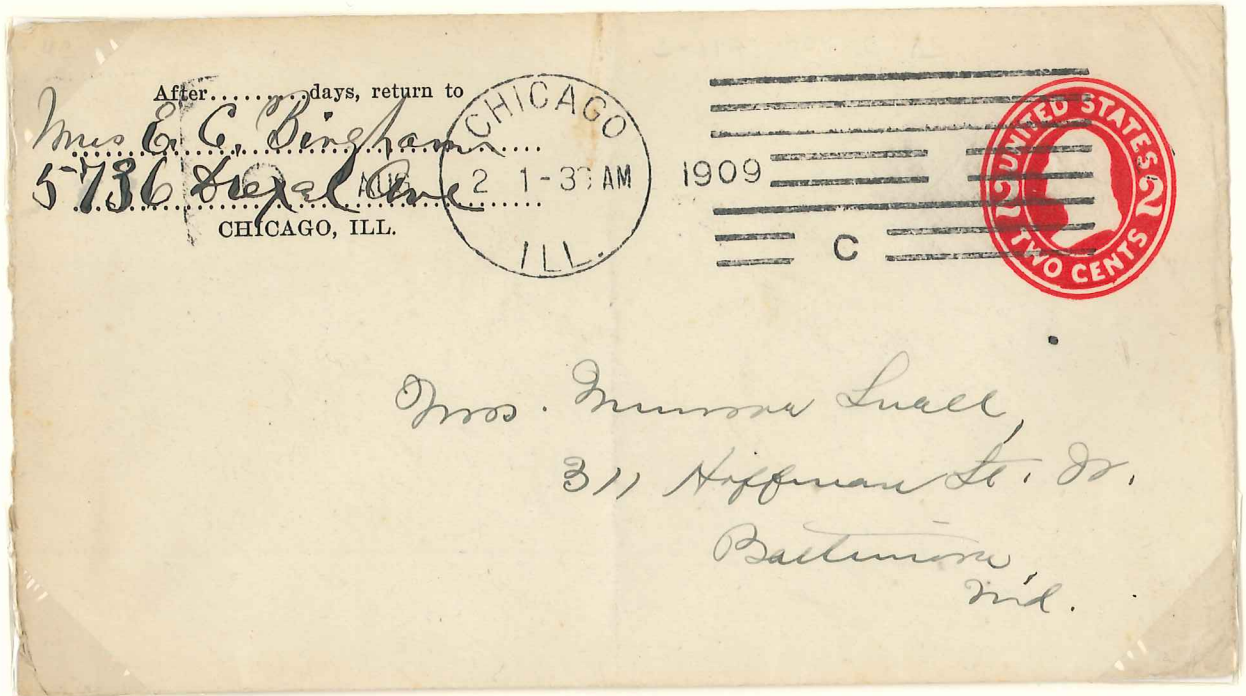 After..........days, return to
Mrs E. C. Bingham
5736 Drexel Ave
CHICAGO, ILL.
CHICAGO
AUG 2 1-30 AM
ILL.
1909
C
UNITED STATES
2 2
TWO CENTS
Mrs.
311 Hoffman St. W.
Baltimore,
Md.